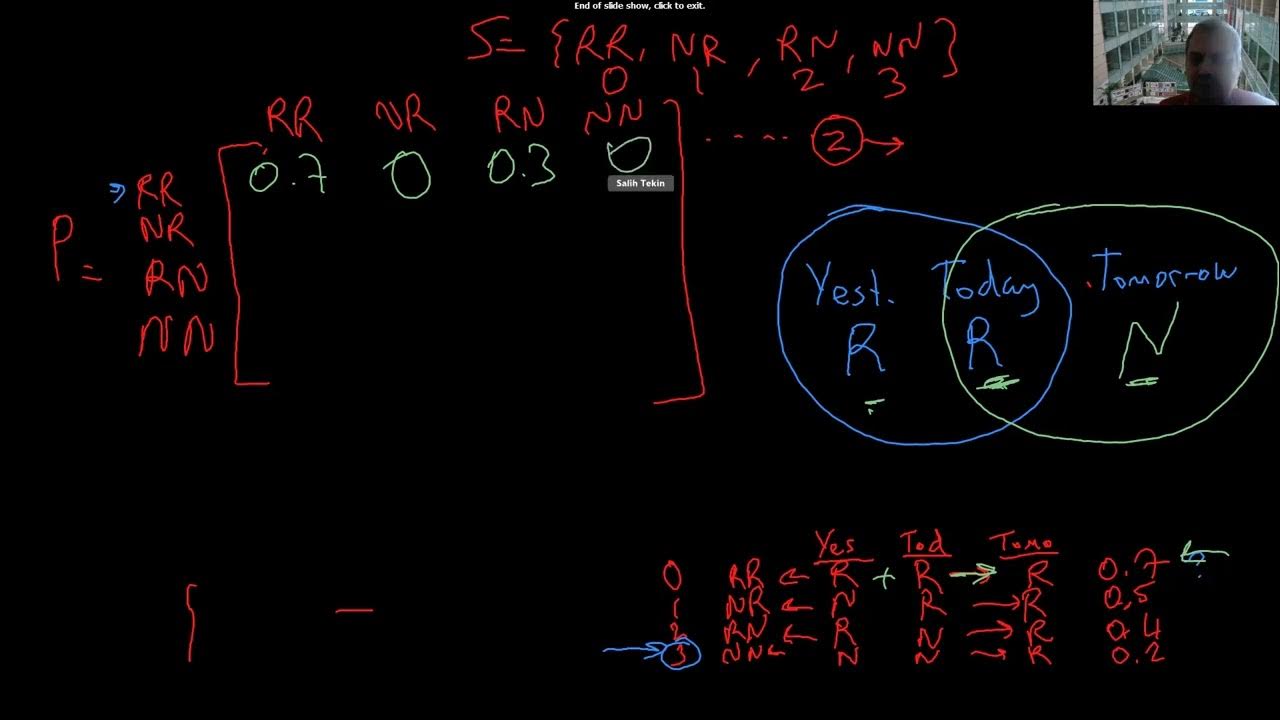 End of slide show, click to exit.
S = {RR, NR, RN, NN}
0 1 2 3
RR NR RN NN
..... 2 →
RR 0.7 0 0.3 0
Salih Tekin
NR
P =
RN
NN
Yest. Today Tomorrow
R R N
Yes Tod Tomo
0 RR ← R + R → R 0.7 ?
1 NR ← N R → R 0.5
2 RN ← R N → R 0.4
→ 3 NN ← N N → R 0.2